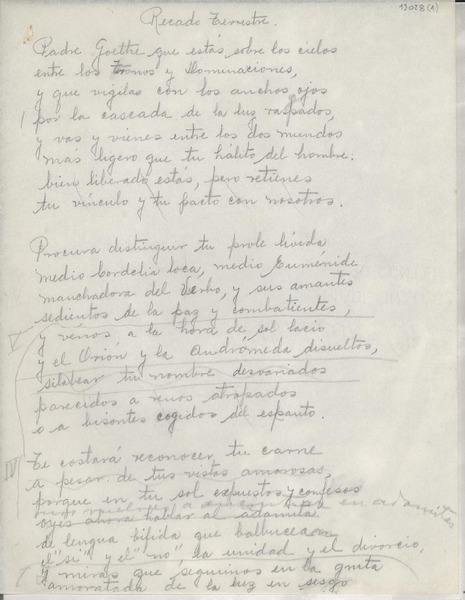 13028(1)
Recado Terrestre.
Padre Goethe que estás sobre los cielos
entre los Tronos y Dominaciones,
y que vigilas con los anchos ojos
por la cascada de la luz raspados,
y vas y vienes entre los dos mundos
mas ligero que tu hálito del hombre:
bien liberado estás, pero retienes
tu vínculo y tu pacto con nosotros.
Procura distinguir tu prole lívida
medio Cordelia loca, medio Euménide
manchadora del Verbo, y sus amantes
sedientos de la paz y combatientes,
V y vénos a la hora de sol lacio
y el Orión y la Andrómeda disueltos,
silabear tu nombre desvariados
parecidos a renos atrapados
o a bisontes cogidos del espanto.
IV Te costará reconocer tu carne
a pesar de tus vistas amorosas,
porque en tu sol expuestos y confesos
en adamitas
oyes ahora hablar al adamita
de lengua bífida que balbucea
el "si" y el "no", la unidad y el divorcio,
y miras que seguimos en la gruta
amoratada de la luz en sesgo